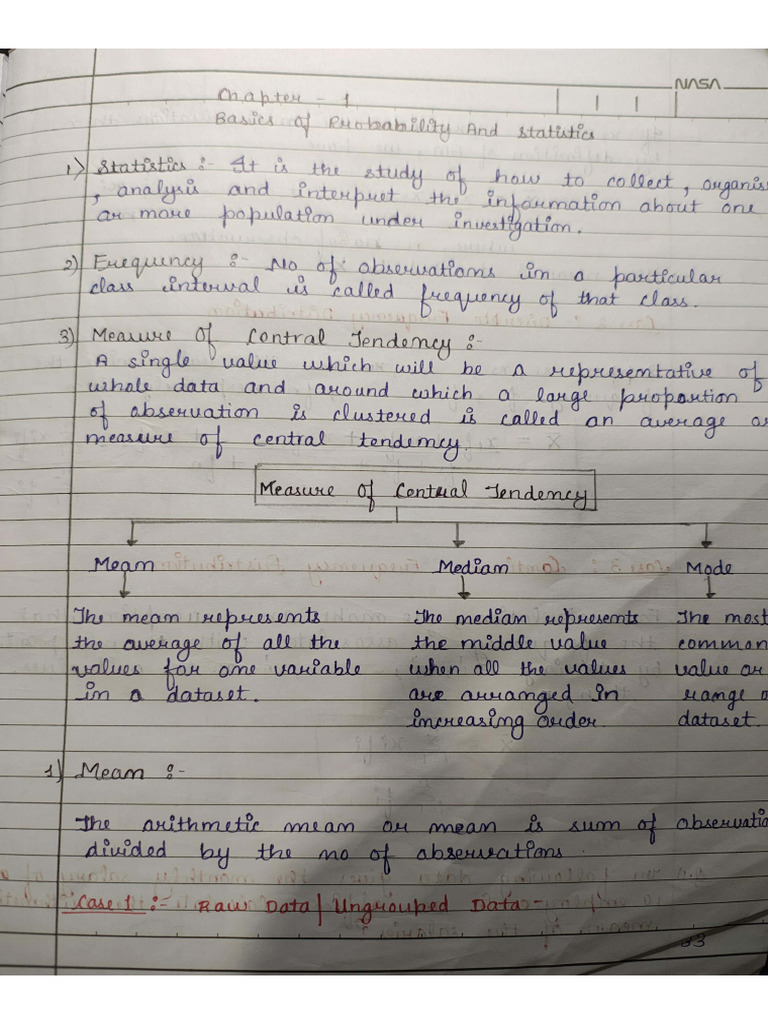 NASA
Chapter - 1
Basics of Probability And Statistics
1) Statistics :- It is the study of how to collect, organis
, analysis and interpret the information about one
or more population under investigation.
2) Frequency :- No of observations in a particular
class interval is called frequency of that class.
3) Measure of Central Tendency :-
A single value which will be a representative of
whole data and around which a large proportion
of observation is clustered is called an average or
measure of central tendency.
Measure Of Central Tendency
Mean Median Mode
The mean represents The median represents The most
the average of all the the middle value common
values for one variable when all the values value or
in a dataset. are arranged in range o
increasing order. dataset.
1) Mean :-
The arithmetic mean or mean is sum of observatio
divided by the no of observations
Case 1 :- Raw Data/Ungrouped Data -